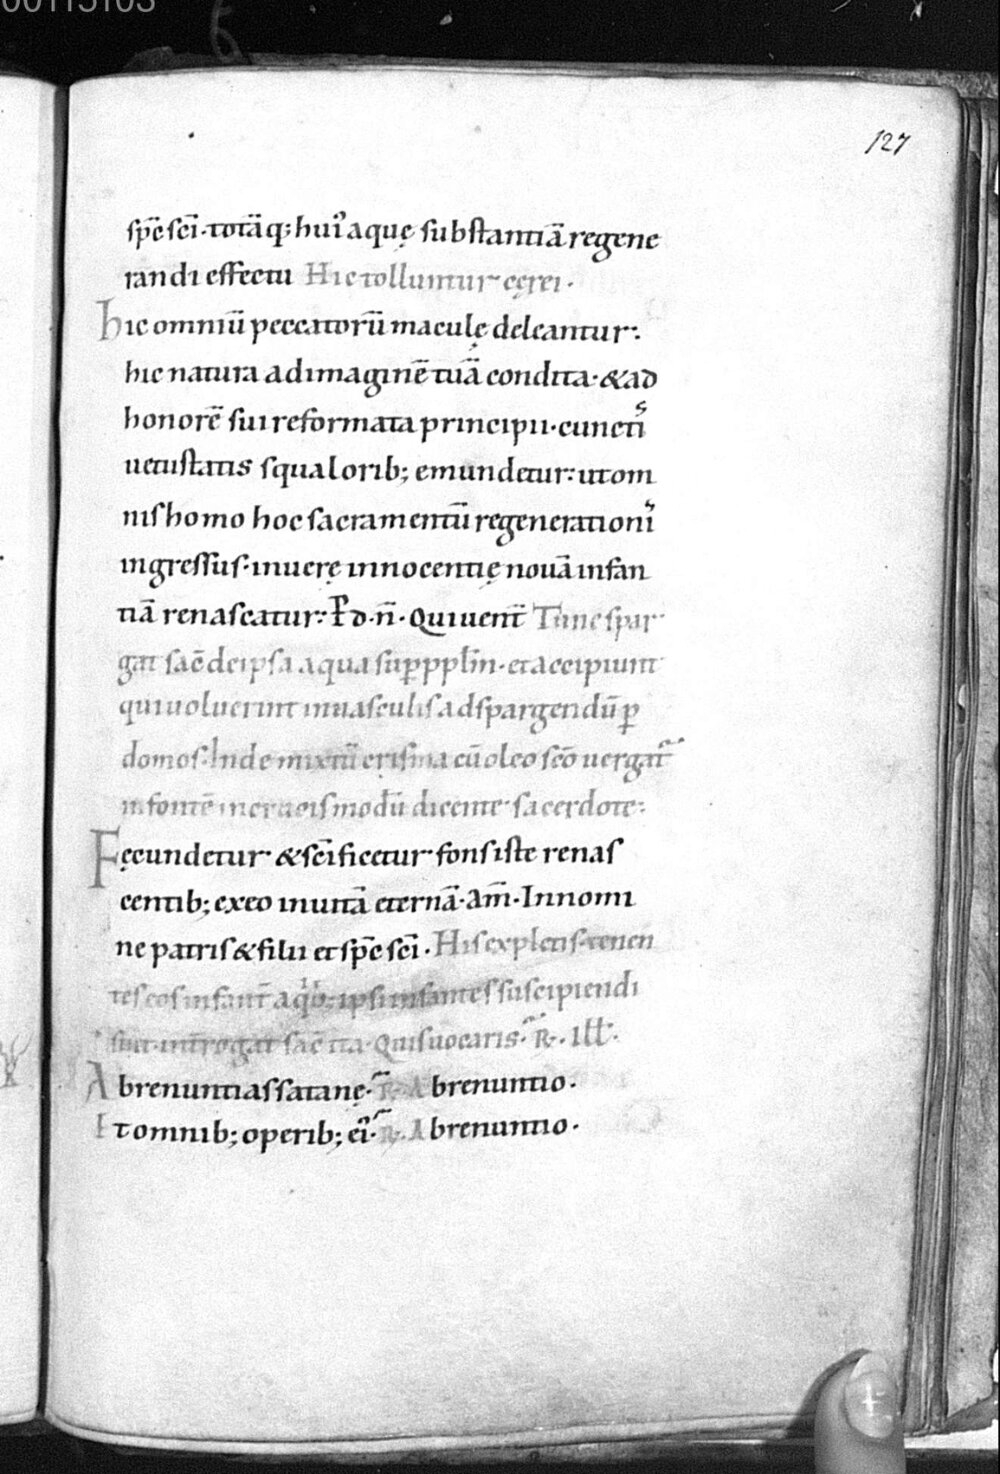 00115103
127
sp̄e sc̄i · totā q; hui᾿ aquę substantiā regene
randi effectu Hic tolluntur cęrei ·
hic omniū peccatorū maculę deleantur:
hic natura ad imaginē tuā condita · & ad
honorē sui reformata principii · cunctis
uetustatis squalorib; emundetur: ut om
nis homo hoc sacramentū regenerationis
ingressus · in uerę innocentię nouā infan
tiā renascatur: P̄ d · n̄ · Qui uent̄ Tunc spar
gat sac̄ de ipsa aqua sup̄ ppl̄m · et accipiunt
qui uoluerint in uasculis ad spargendū p̄
domos · Inde mixtū crisma cū oleo sc̄o uergat̄
in fontē in crucis modū dicente sacerdote:
Fęcundetur & sc̄ificetur fons iste renas
centib; ex eo in uitā eternā · am̄ · In nomi
ne patris & filii et sp̄e sc̄i · His expletis · tenen
tes eos infant̄ a qb; ipsi infantes suscipiendi
sunt · int̄rogat sac̄ ita · Quis uocaris · R · Ill ·
Abrenuntias satanę · R · Abrenuntio ·
Et omnib; operib; ei᾿ · R · Abrenuntio ·